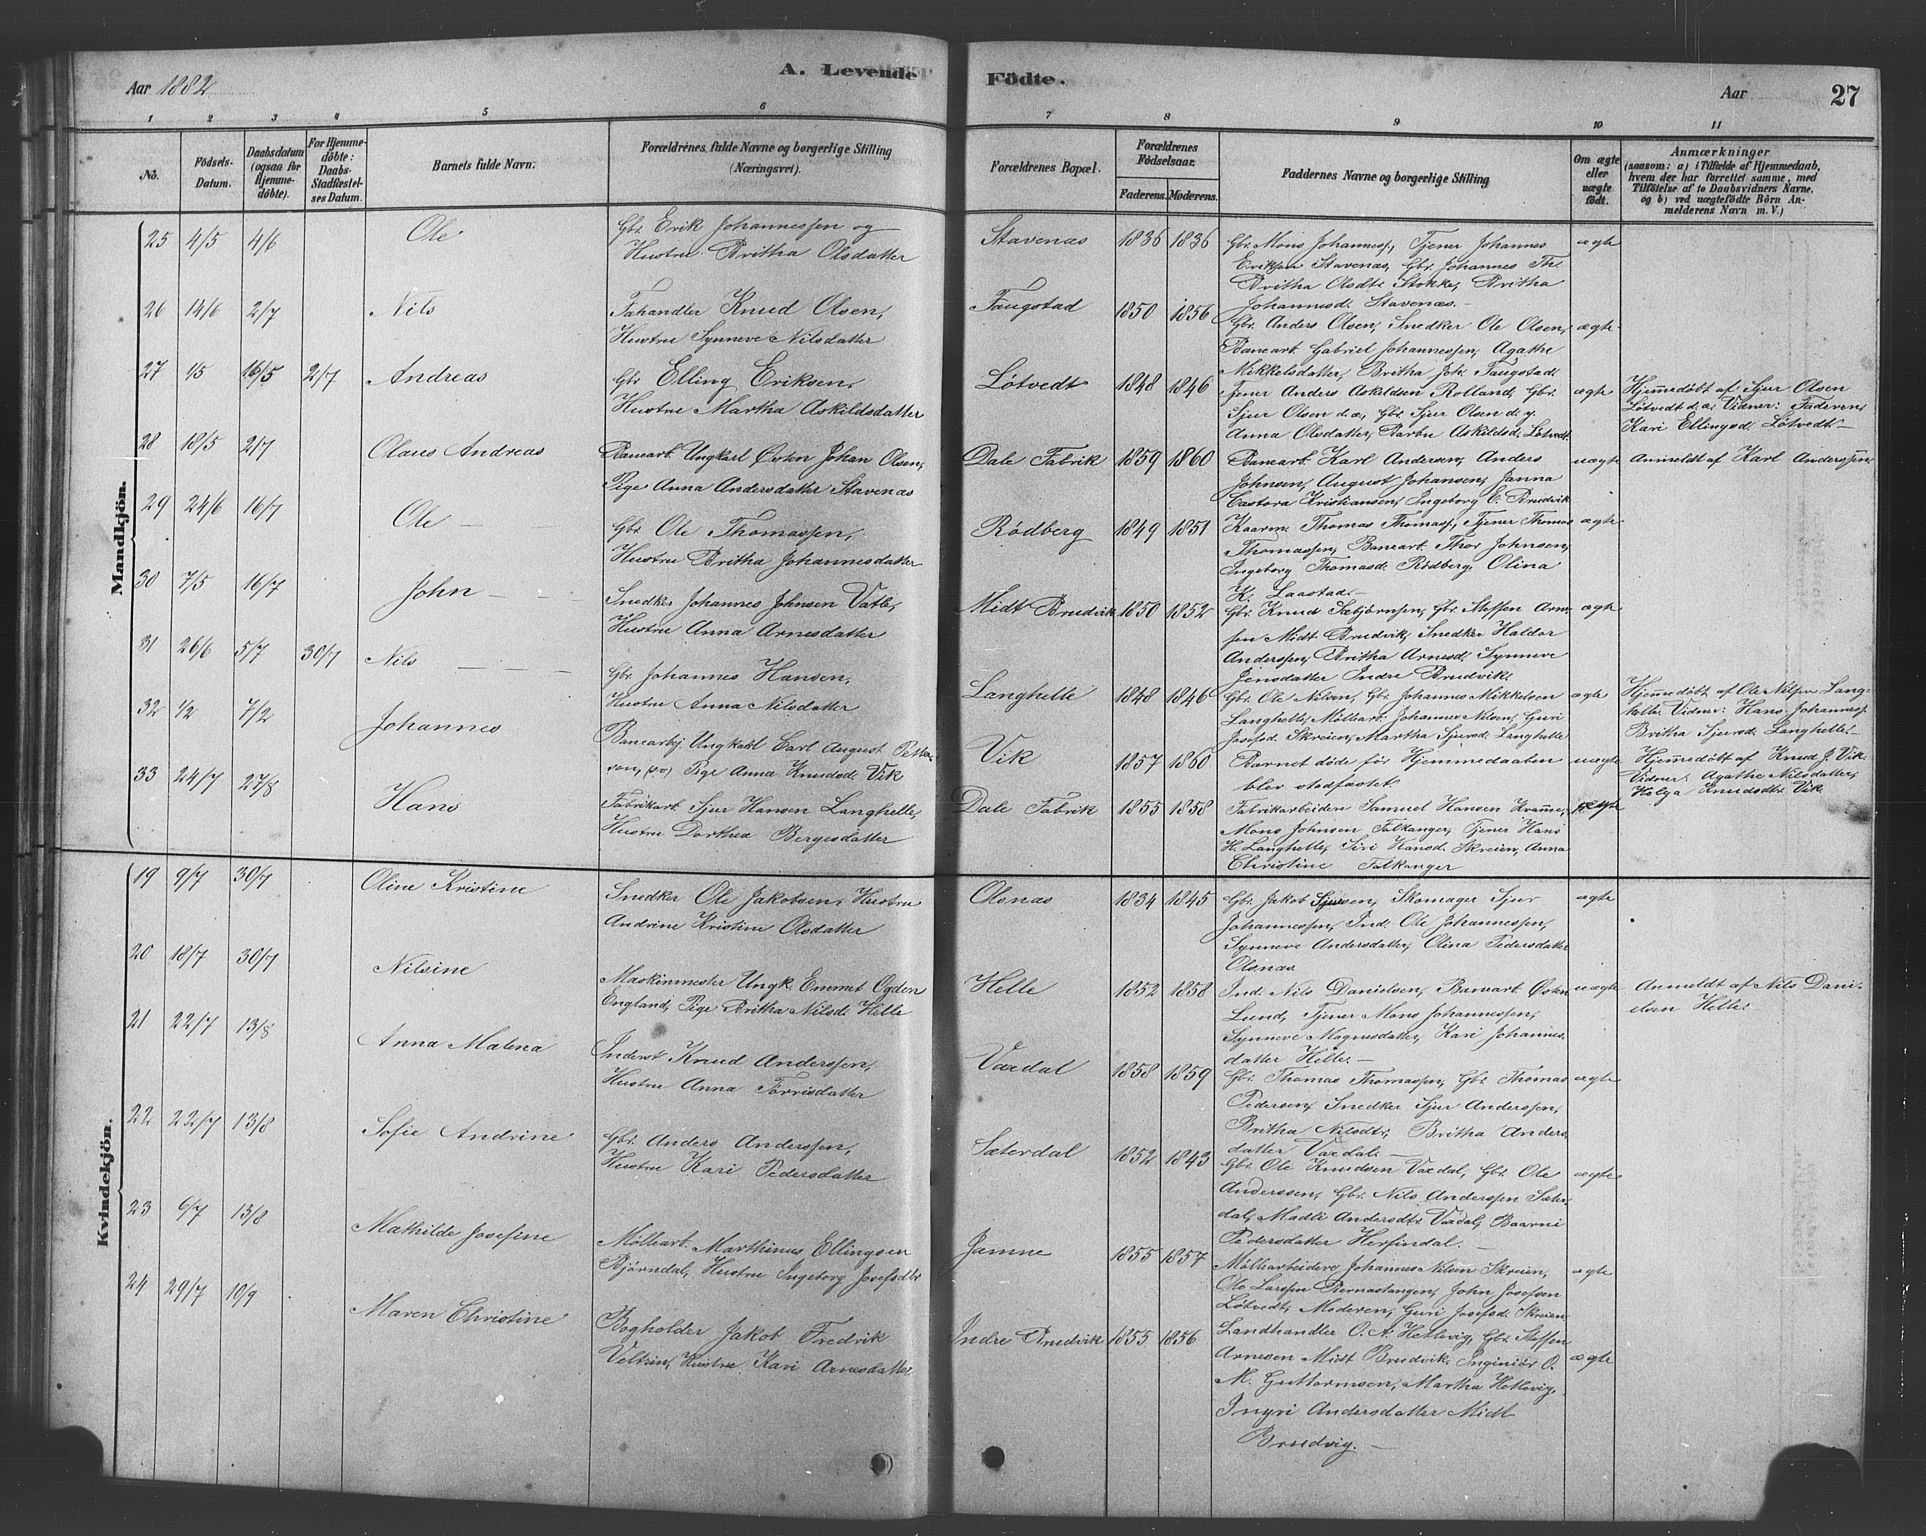 Aar 1882
A. Levende Födte.
Aar 27
1 2 3 4 5 6 7 8 9 10 11
No.
Födsels-Datum.
Daabsdatum (ogsaa for Hjemmedöbte).
For Hjemmedöbte: Daabs-Stadfæstelses Datum.
Barnets fulde Navn.
Forældrenes fulde Navne og borgerlige Stilling
(Næringsvei).
Forældrenes Bopæl.
Forældrenes Födselsaar.
Faderens. Moderens.
Faddernes Navne og borgerlige Stilling
Om ægte eller uægte födt.
Anmærkninger
(saasom: a) i Tilfælde af Hjemmedaab,
hvem der har forrettet samme, med
Tilföielse af to Daabsvidners Navne.
og b) ved uægtefödte Börn An-
melderens Navn m. V.)
Mandkjön.
25 4/5 4/6 Ole
Gbr. Erik Johannessen og
Hustru Britha Olsdatter
Stavenæs 1836 1836
Gbr. Mons Johanness., Tjener Johannes
Eriksen Stavenæs, Gbr. Johannes Th.
Britha Olsdt. Stokke, Britha
Johannesd. Stavenæs.
ægte
26 14/6 2/7 Nils
Fæhandler Knud Olsen,
Hustru Synneve Nilsdatter
Taugstad 1850 1856
Gbr. Anders Olsen, Snedker Ole Olsen,
Banearb. Gabriel Johannessen, Agathe
Mikkelsdatter, Britha Joh. Taugstad.
ægte
27 1/5 16/5 2/7 Andreas
Gbr. Elling Eriksen,
Hustru Martha Askildsdatter
Løtvedt 1848 1846
Tjener Anders Askildsen Rolland, Gbr.
Sjur Olsen d.æ., Gbr. Sjur Olsen d.y.
Anna Olsdatter, Barbu Askildsd. Løtvedt
ægte
Hjemmedöbt af: Sjur Olsen
Løtvedt d.æ. Vidner: Faderen,
Kari Ellingsd. Løtvedt
28 18/5 2/7 Olaus Andreas
Banearb. Ungkarl Østen Johan Olsen,
Pige Anna Andersdatter Stavenæs
Dale Fabrik 1859 1860
Banearb. Karl Andersen, Anders
Johnsen, August Johansen, Janna
Castora Kristiansen, Ingeborg O. Brudvik
uægte
Anmeldt af Karl Anderssen
29 24/6 16/7 Ole
Gbr. Ole Thomassen,
Hustru Britha Johannesdatter
Rödberg 1849 1851
Kaarm. Thomas Thomass., Tjener Thomas
Thomassen, Banearb. Thor Johnsen,
Ingeborg Thomasd. Rödberg, Olina
K. Laastad.
ægte
30 7/5 16/7 John
Snedker Johannes Johnsen Vatle,
Hustru Anna Arnesdatter
Midt Brudvik 1850 1852
Gbr. Knud Sæbjörnsen, Gbr. Steffen Arne-
sen Midt Brudvik, Snedker Haldor
Anderssen, Britha Arnesd. Synneve
Jensdatter Indre Brudvik.
ægte
31 26/6 5/7 30/7 Nils
Gbr. Johannes Hansen,
Hustru Anna Nilsdatter
Langhelle 1848 1846
Gbr. Ole Nilsen, Gbr. Johannes Mikkelsen
Langhelle, Mölleart. Johannes Nilsen, Guri
Josefsd. Skreien, Martha Sjursd. Langhelle
ægte
Hjemmedöbt af Ole Nilsen Lang-
helle. Vidner: Hans Johanness.
Britha Sjursd. Langhelle.
32 1/2 7/2 Johannes
Banearbj. Ungkarl Carl August Petter-
son, Pige Anna Knudsd. Vik
Vik 1857 1860
Barnet döde för Hjemmedaaben
blev stadfæstet.
uægte
Hjemmedöbt af Knud J. Vik
Vidner: Agathe Nilsdatter,
Helga Knudsdtr. Vik
33 24/7 27/8 Hans
Fabrikarb. Sjur Hansen Langhelle,
Hustru Dorthea Bergesdatter
Dale Fabrik 1855 1858
Fabrikarbeidere Samuel Hansen Kvamme,
Mons Johnsen Falkanger, Tjener Hans
H. Langhelle, Siri Hansd. Skreien, Anna
Christine Falkanger
ægte
Kvindekjön.
19 9/7 30/7 Oline Kristine
Snedker Ole Jakobsen, Hustru
Andrine Kristine Olsdatter
Olsnæs 1834 1845
Gbr. Jakob Sjursen, Skomager Sjur
Johannessen, Ind. Ole Johannessen,
Synneve Andersdatter, Olina Pedersdatter
Olsnæs
ægte
20 18/7 30/7 Nilsine
Maskinmester Ungk. Emmet Ogden
England, Pige Britha Nilsd. Helle
Helle 1852 1858
Ind. Nils Danielsen, Banearb. Østen
Lund, Tjener Mons Johannessen,
Synneve Magnesdatter, Kari Johannes-
datter Helle.
uægte
Anmeldt af Nils Dani-
elsen Helle.
21 22/7 13/8 Anna Malena
Inderst Knud Anderssen,
Hustru Anna Torrisdatter
Vaxdal 1858 1859
Gbr. Thomas Thomassen, Gbr. Thomas
Pedersen, Snedker Sjur Anderssen,
Britha Nilsdtr, Britha Anders-
datter Vaxdal.
ægte
22 22/7 13/8 Sofie Andrine
Gbr. Anders Anderssen,
Hustru Kari Pedersdatter
Sæterdal 1852 1843
Gbr. Ole Knudsen Vaxdal, Gbr. Ole
Anderssen, Gbr. Nils Anderssen Sæter-
dal, Madli Andersdtr. Vaxdal, Baarni
Pedersdatter Herfindal.
ægte
23 6/7 13/8 Mathilde Josefine
Mölleart. Marthinus Ellingsen
Björndal, Hustru Ingeborg Josefsdtr
Jamne 1855 1857
Möllearbeidere Johannes Nilsen Skreien,
Ole Larssen Bernastangen, John Josefsen
Løtvedt, Moderen, Guri Josefsd. Skreien
ægte
24 29/7 10/9 Maren Christine
Bogholder Jakob Fredrik
Veltzin, Hustru Kari Arnesdatter
Indre Brudvik 1855 1856
Landhandler O. A. Hetlevig, Gbr. Steffen
Arnesen Midt Brudvik, Ingeniör O.
M. Guttormsen, Martha Hetlevig,
Ingri Andersdatter Midt
Brudvig.
ægte